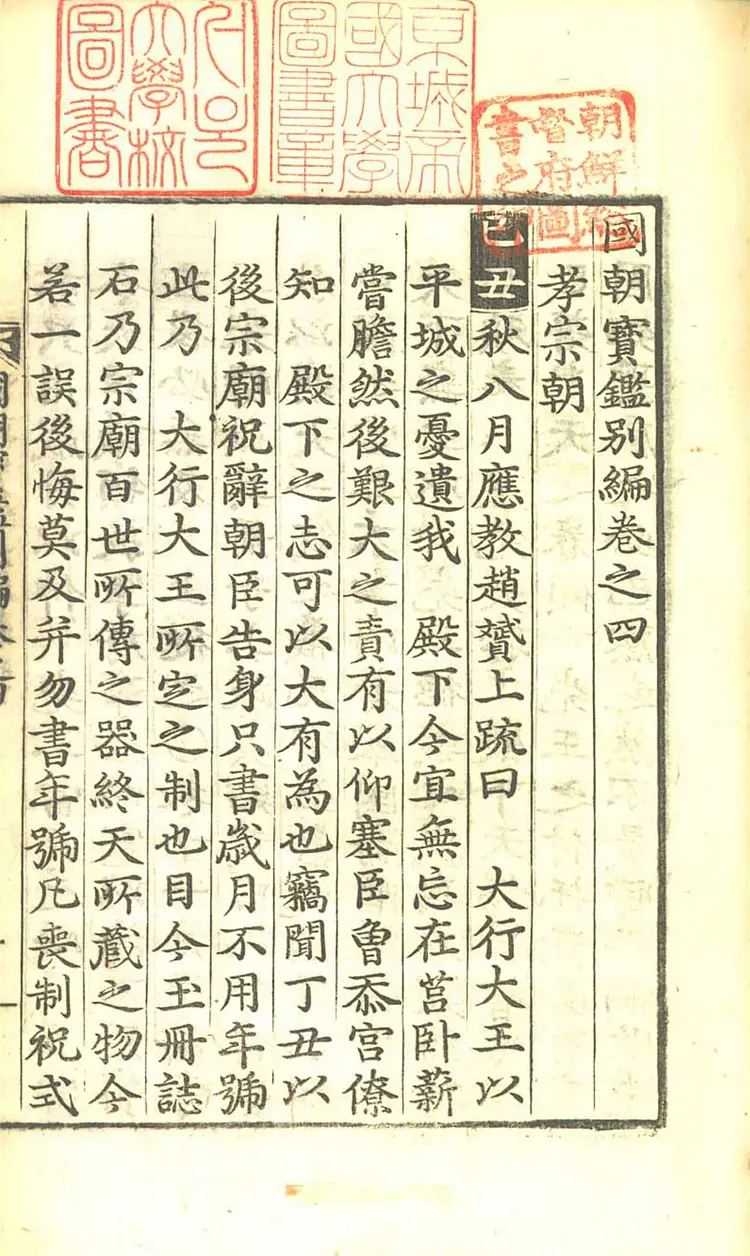 朝鮮總
督府圖
書之
京城帝
國大學
圖書章
서울
大學校
圖書
國朝寶鑑別編卷之四
孝宗朝
己丑秋八月應教趙贇上疏曰 大行大王以
平城之憂遺我 殿下今宜無忘在莒臥薪
嘗膽然後艱大之責有以仰塞臣曾忝宮僚
知 殿下之志可以大有為也竊聞丁丑以
後宗廟祝辭朝臣告身只書歲月不用年號
此乃 大行大王所定之制也目今玉冊誌
石乃宗廟百世所傳之器終天所藏之物今
若一誤後悔莫及幷勿書年號凡喪制祝式